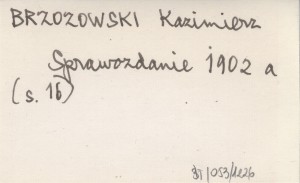 BRZOZOWSKI Kazimierz
Sprawozdanie 1902 a
(s. 16)